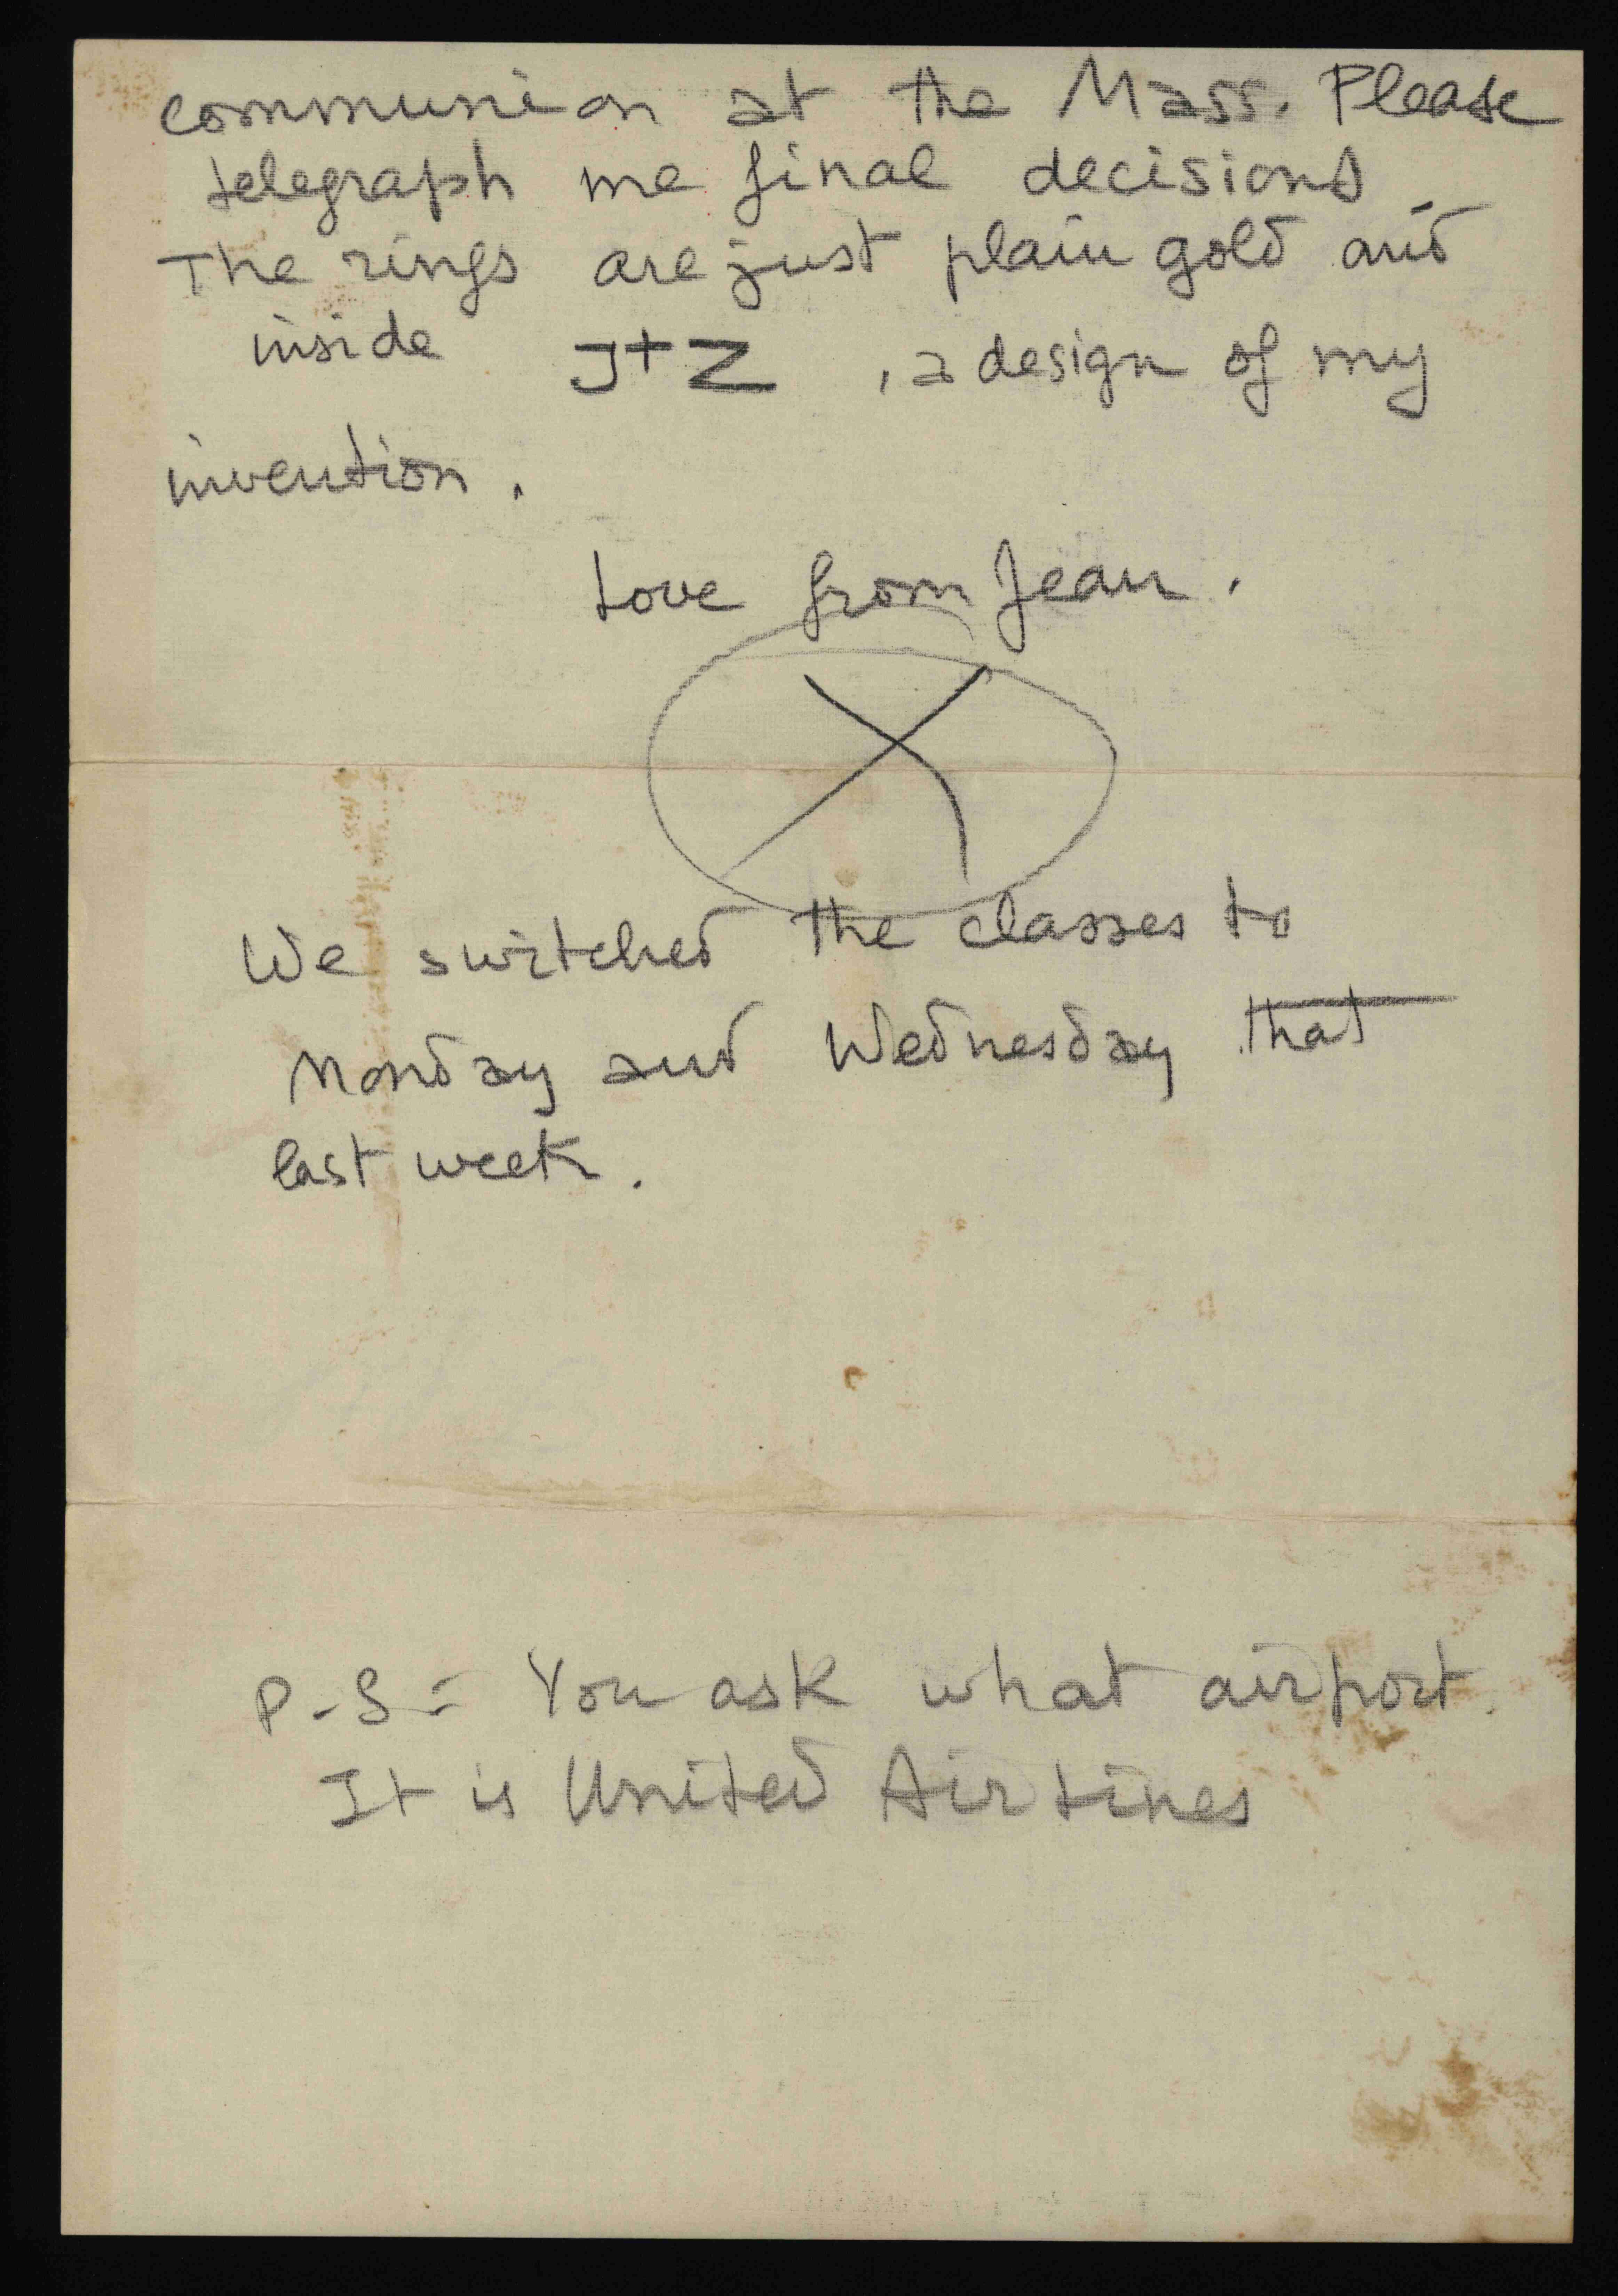 communion at the Mass. Please
telegraph me final decisions
The rings are just plain gold and
inside J+Z , a design of my
invention.
Love from Jean.
We switched the classes to
Monday and Wednesday that
last week.
P-S= You ask what airport.
It is United Air Lines